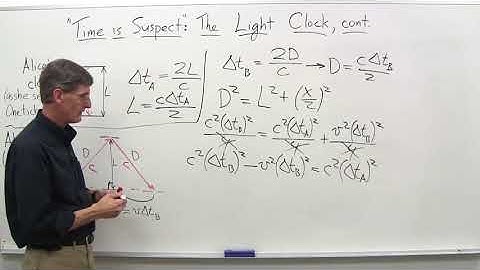 "Time is Suspect": The Light Clock, cont.
Δt_A = 2L/c
L = cΔt_A/2
L
Δt_B = 2D/c → D = cΔt_B/2
D² = L² + (x/2)²
c²(Δt_B)²/4 = c²(Δt_A)²/4 + v²(Δt_B)²/4
c²(Δt_B)² - v²(Δt_B)² = c²(Δt_A)²
D D
c c
= vΔt_B